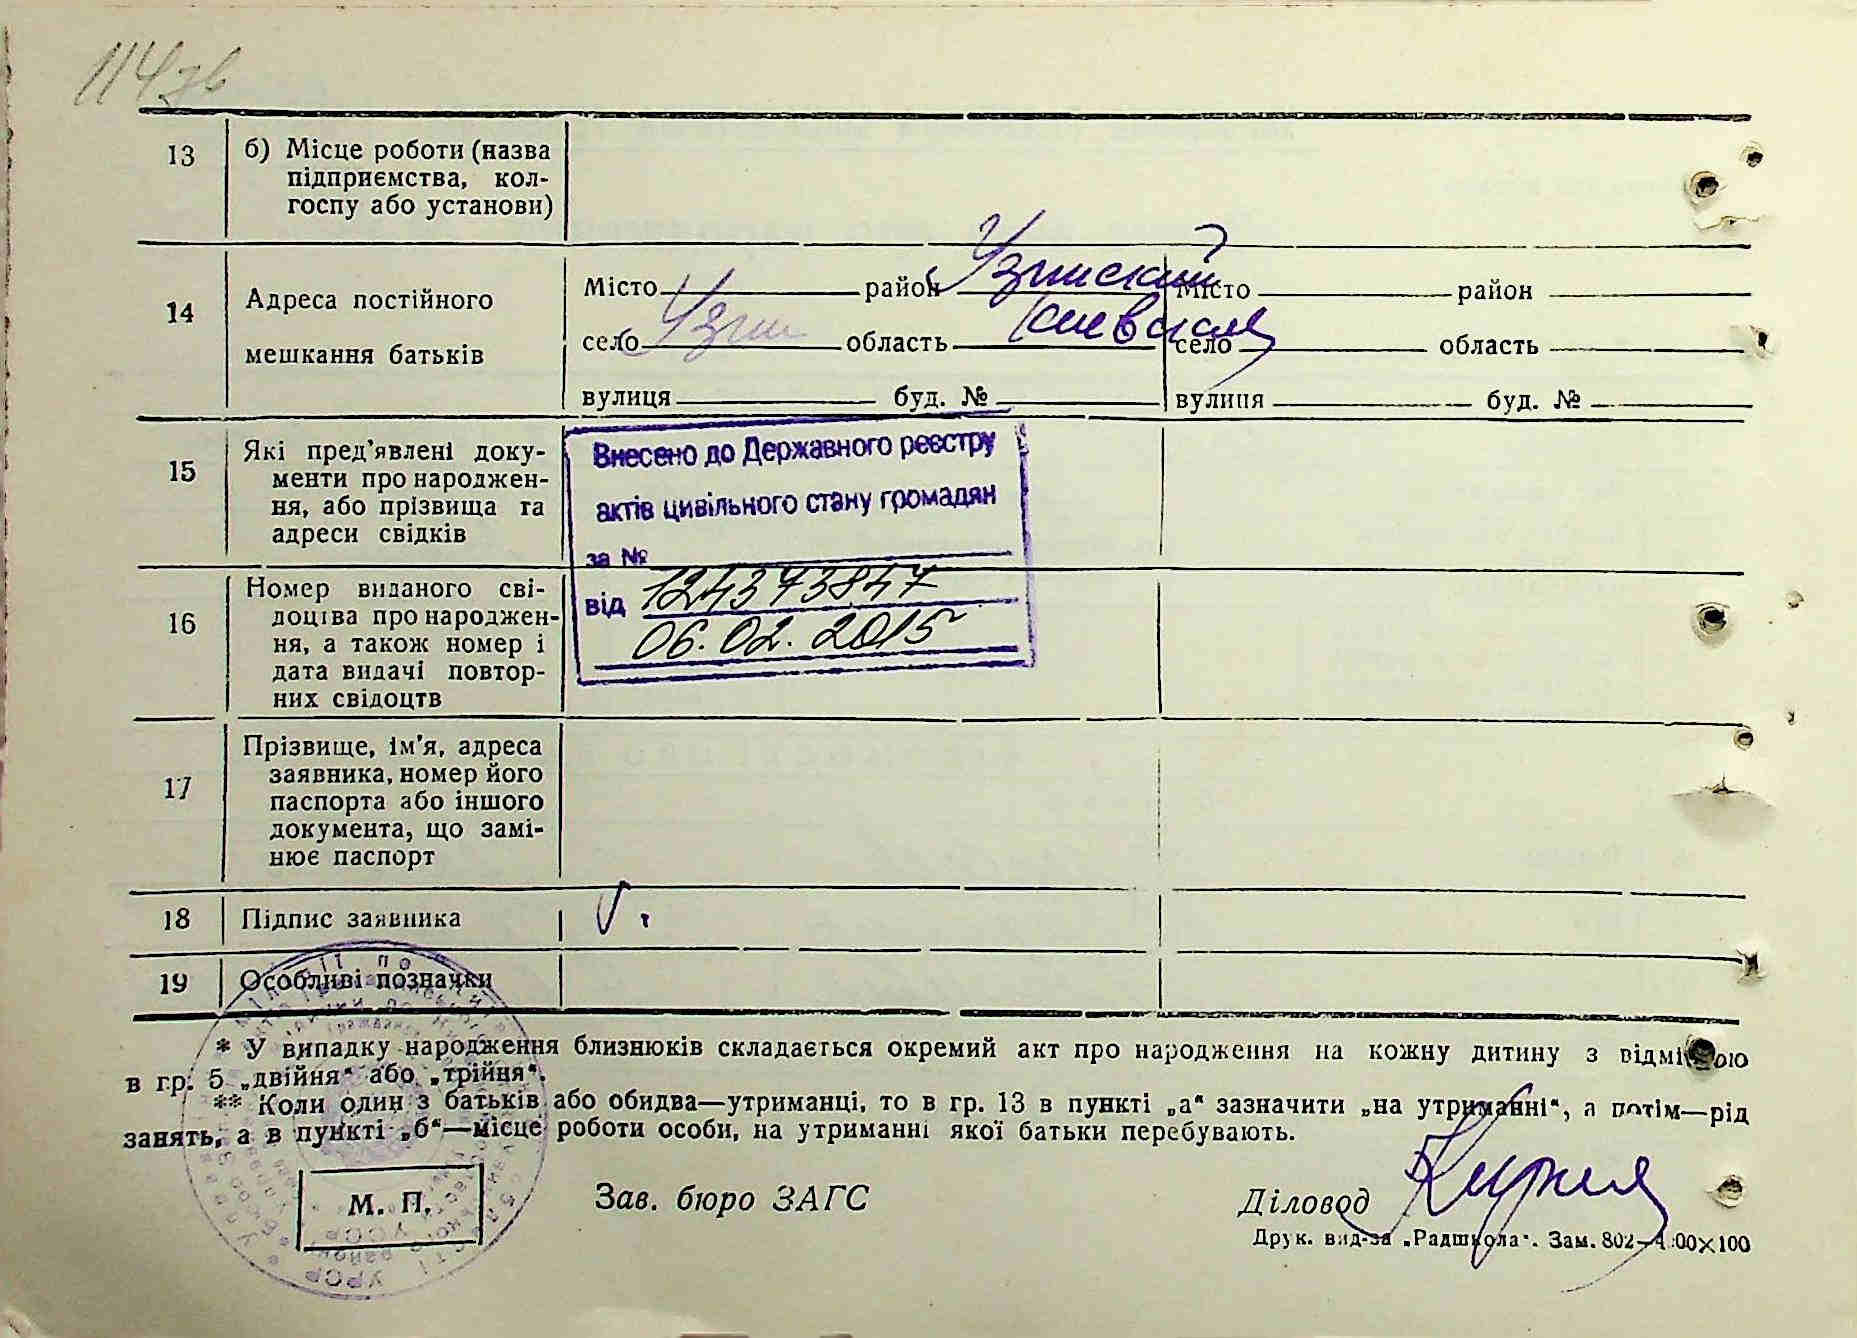 114 зв
13 б) Місце роботи (назва
підприємства, кол-
госпу або установи)
14 Адреса постійного
мешкання батьків
Місто Узин район Узинский Місто район
село область Киевская село область
вулиця буд. № вулиця буд. №
15 Які пред'явлені доку-
менти про народжен-
ня, або прізвища та
адреси свідків
Внесено до Державного реєстру
актів цивільного стану громадян
за №
від 124373847
06.02.2015
16 Номер виданого сві-
доцтва про народжен-
ня, а також номер і
дата видачі повтор-
них свідоцтв
17 Прізвище, ім'я, адреса
заявника, номер його
паспорта або іншого
документа, що замі-
нює паспорт
18 Підпис заявника
19 Особливі позначки
* У випадку народження близнюків складається окремий акт про народження на кожну дитину з відміткою
в гр. 5 „двійня“ або „трійня“.
** Коли один з батьків або обидва—утриманці, то в гр. 13 в пункті „а“ зазначити „на утриманні“, а потім—рід
занять, а в пункті „б“—місце роботи особи, на утриманні якої батьки перебувають.
М. П.
Зав. бюро ЗАГС
Діловод
Друк. вид-ва „Радшкола“. Зам. 802